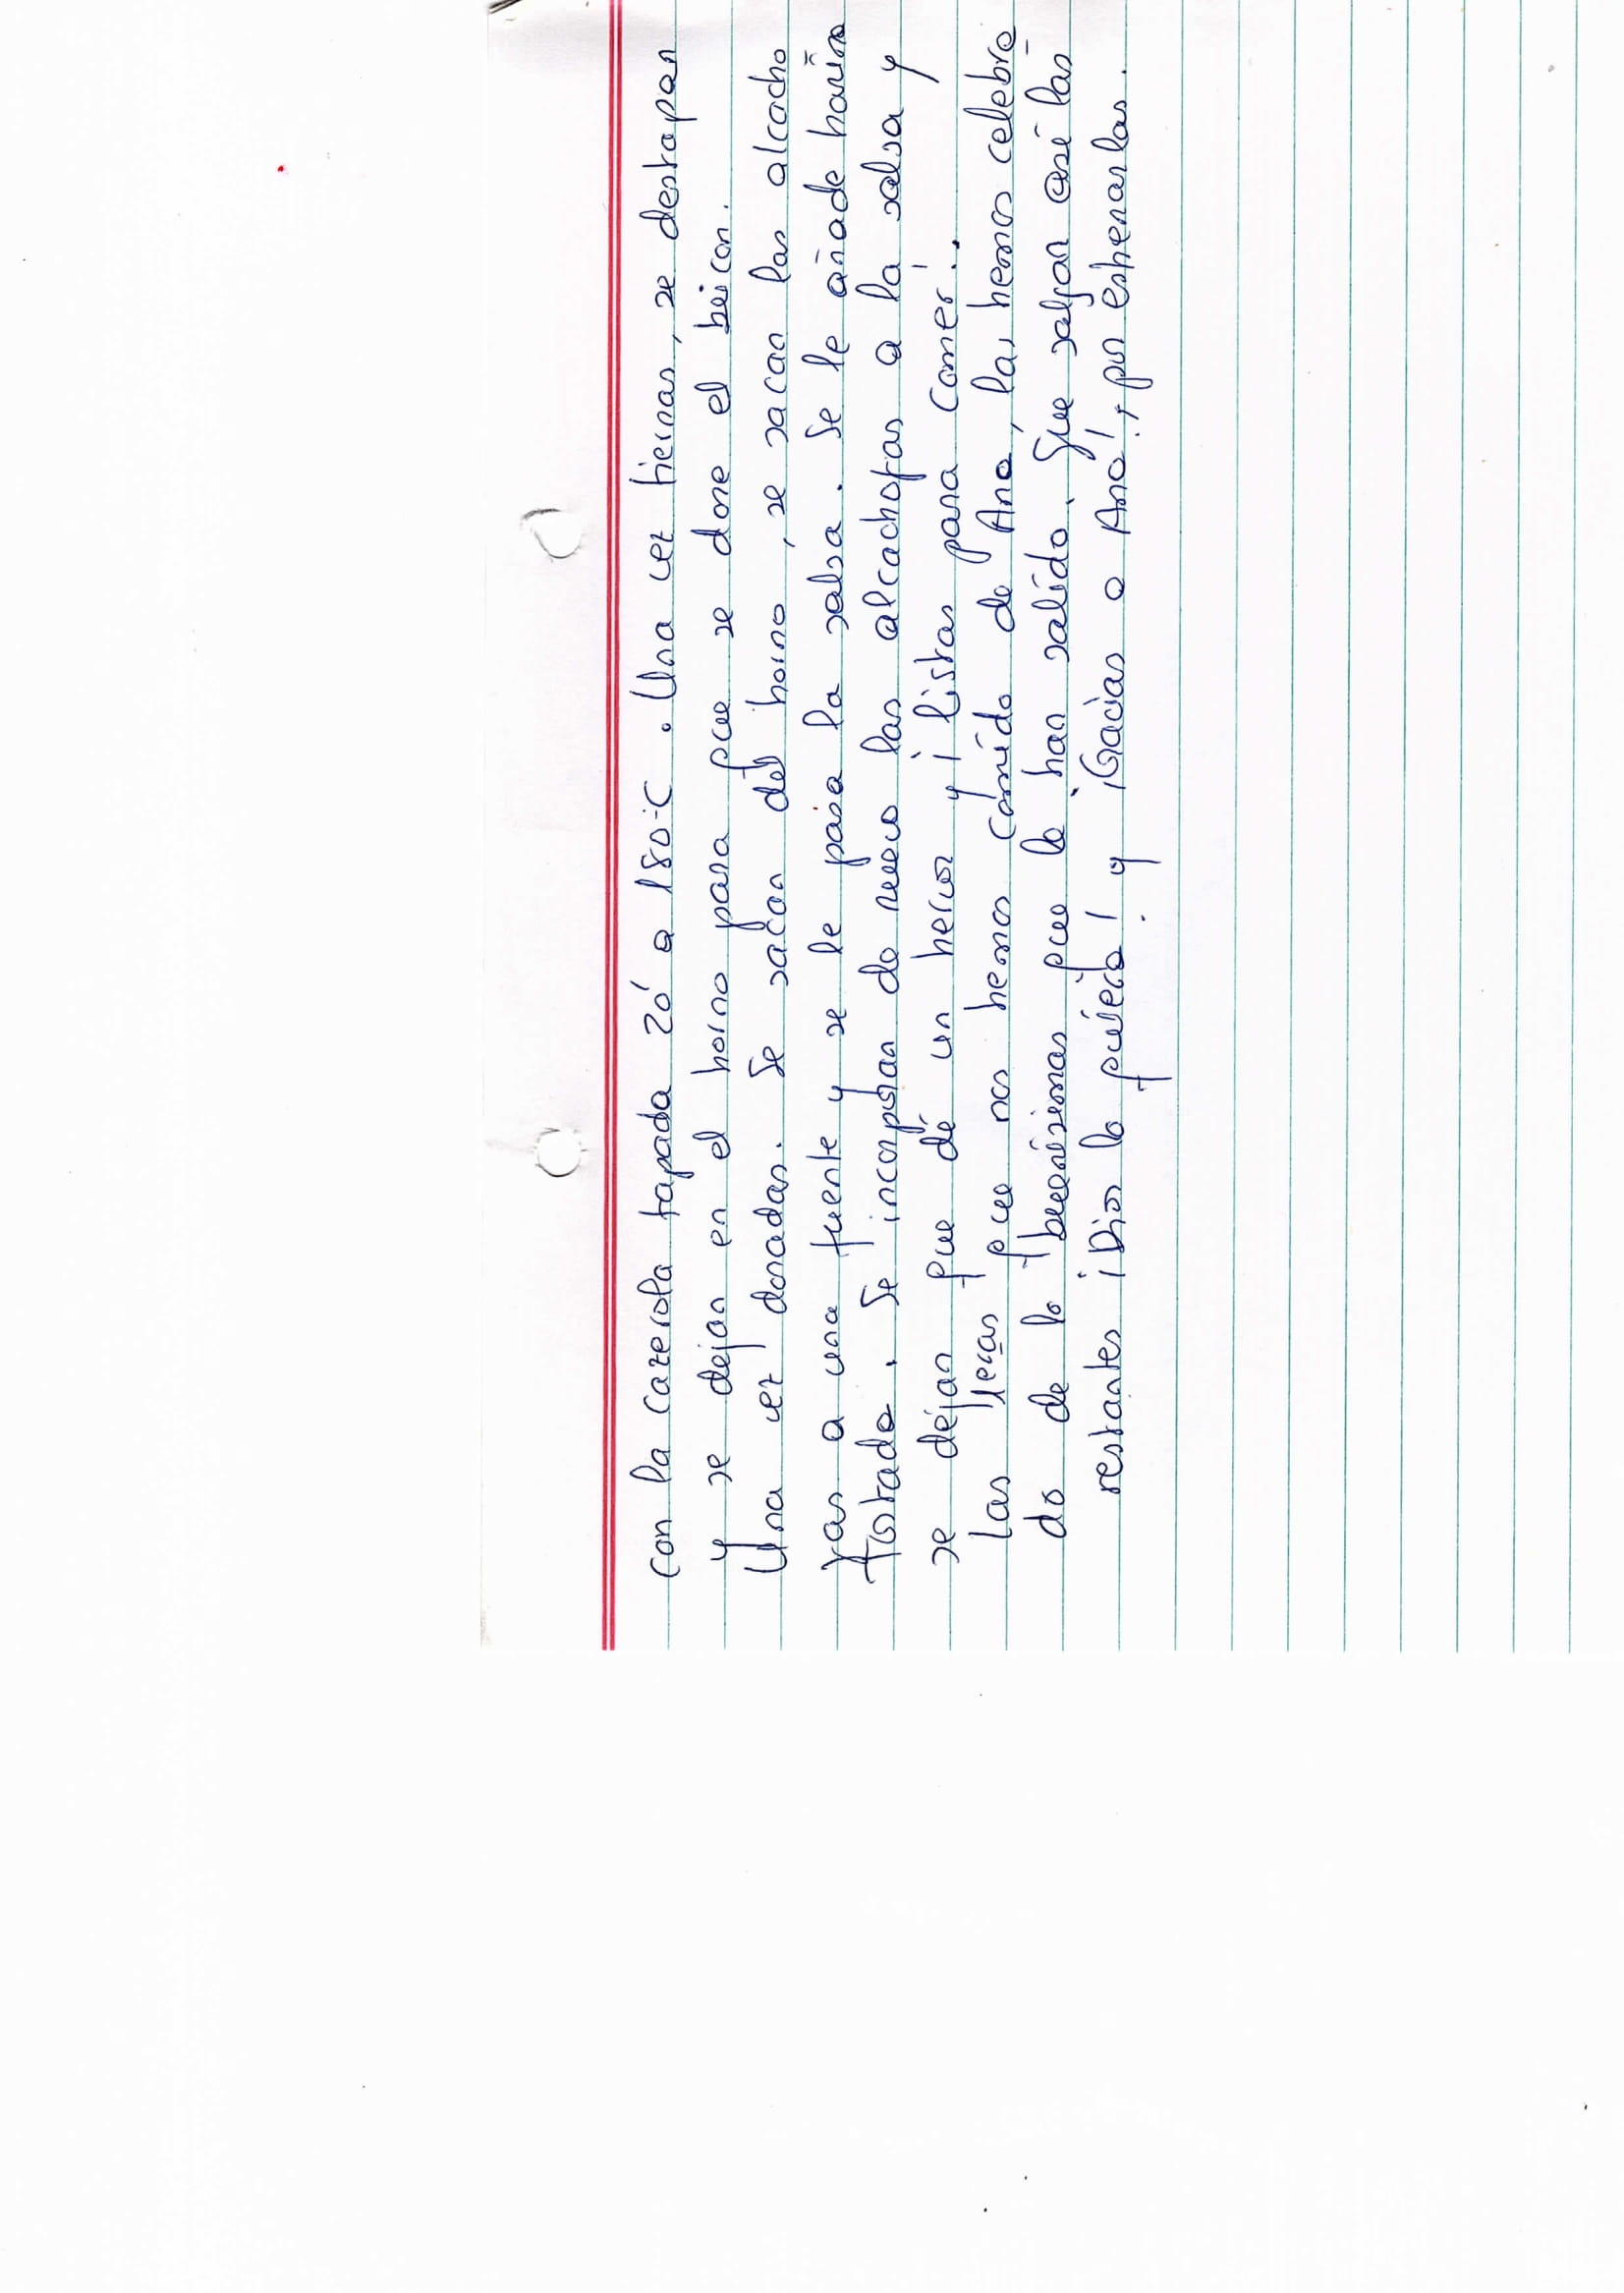 con la cazerola tapada 20' a 180·C. Una vez tiernas, se destapan
y se dejan en el horno para que se dore el beicon.
Una vez doradas. Se sacan del horno, se sacan las alcacho
fas a una fuente y se le pasa la salsa. Se le añade harina
tostada. Se incorporan de nuevo las alcachofas a la salsa y
se dejan que dé un hervor y ¡listas para comer!.
Las que nos hemos comido de Ana, las hemos celebra
do de lo buenísimas que le han salido. Que salgan así las
restantes ¡Dios lo quiera! y ¡Gracias a Ana!, por estrenarlas.